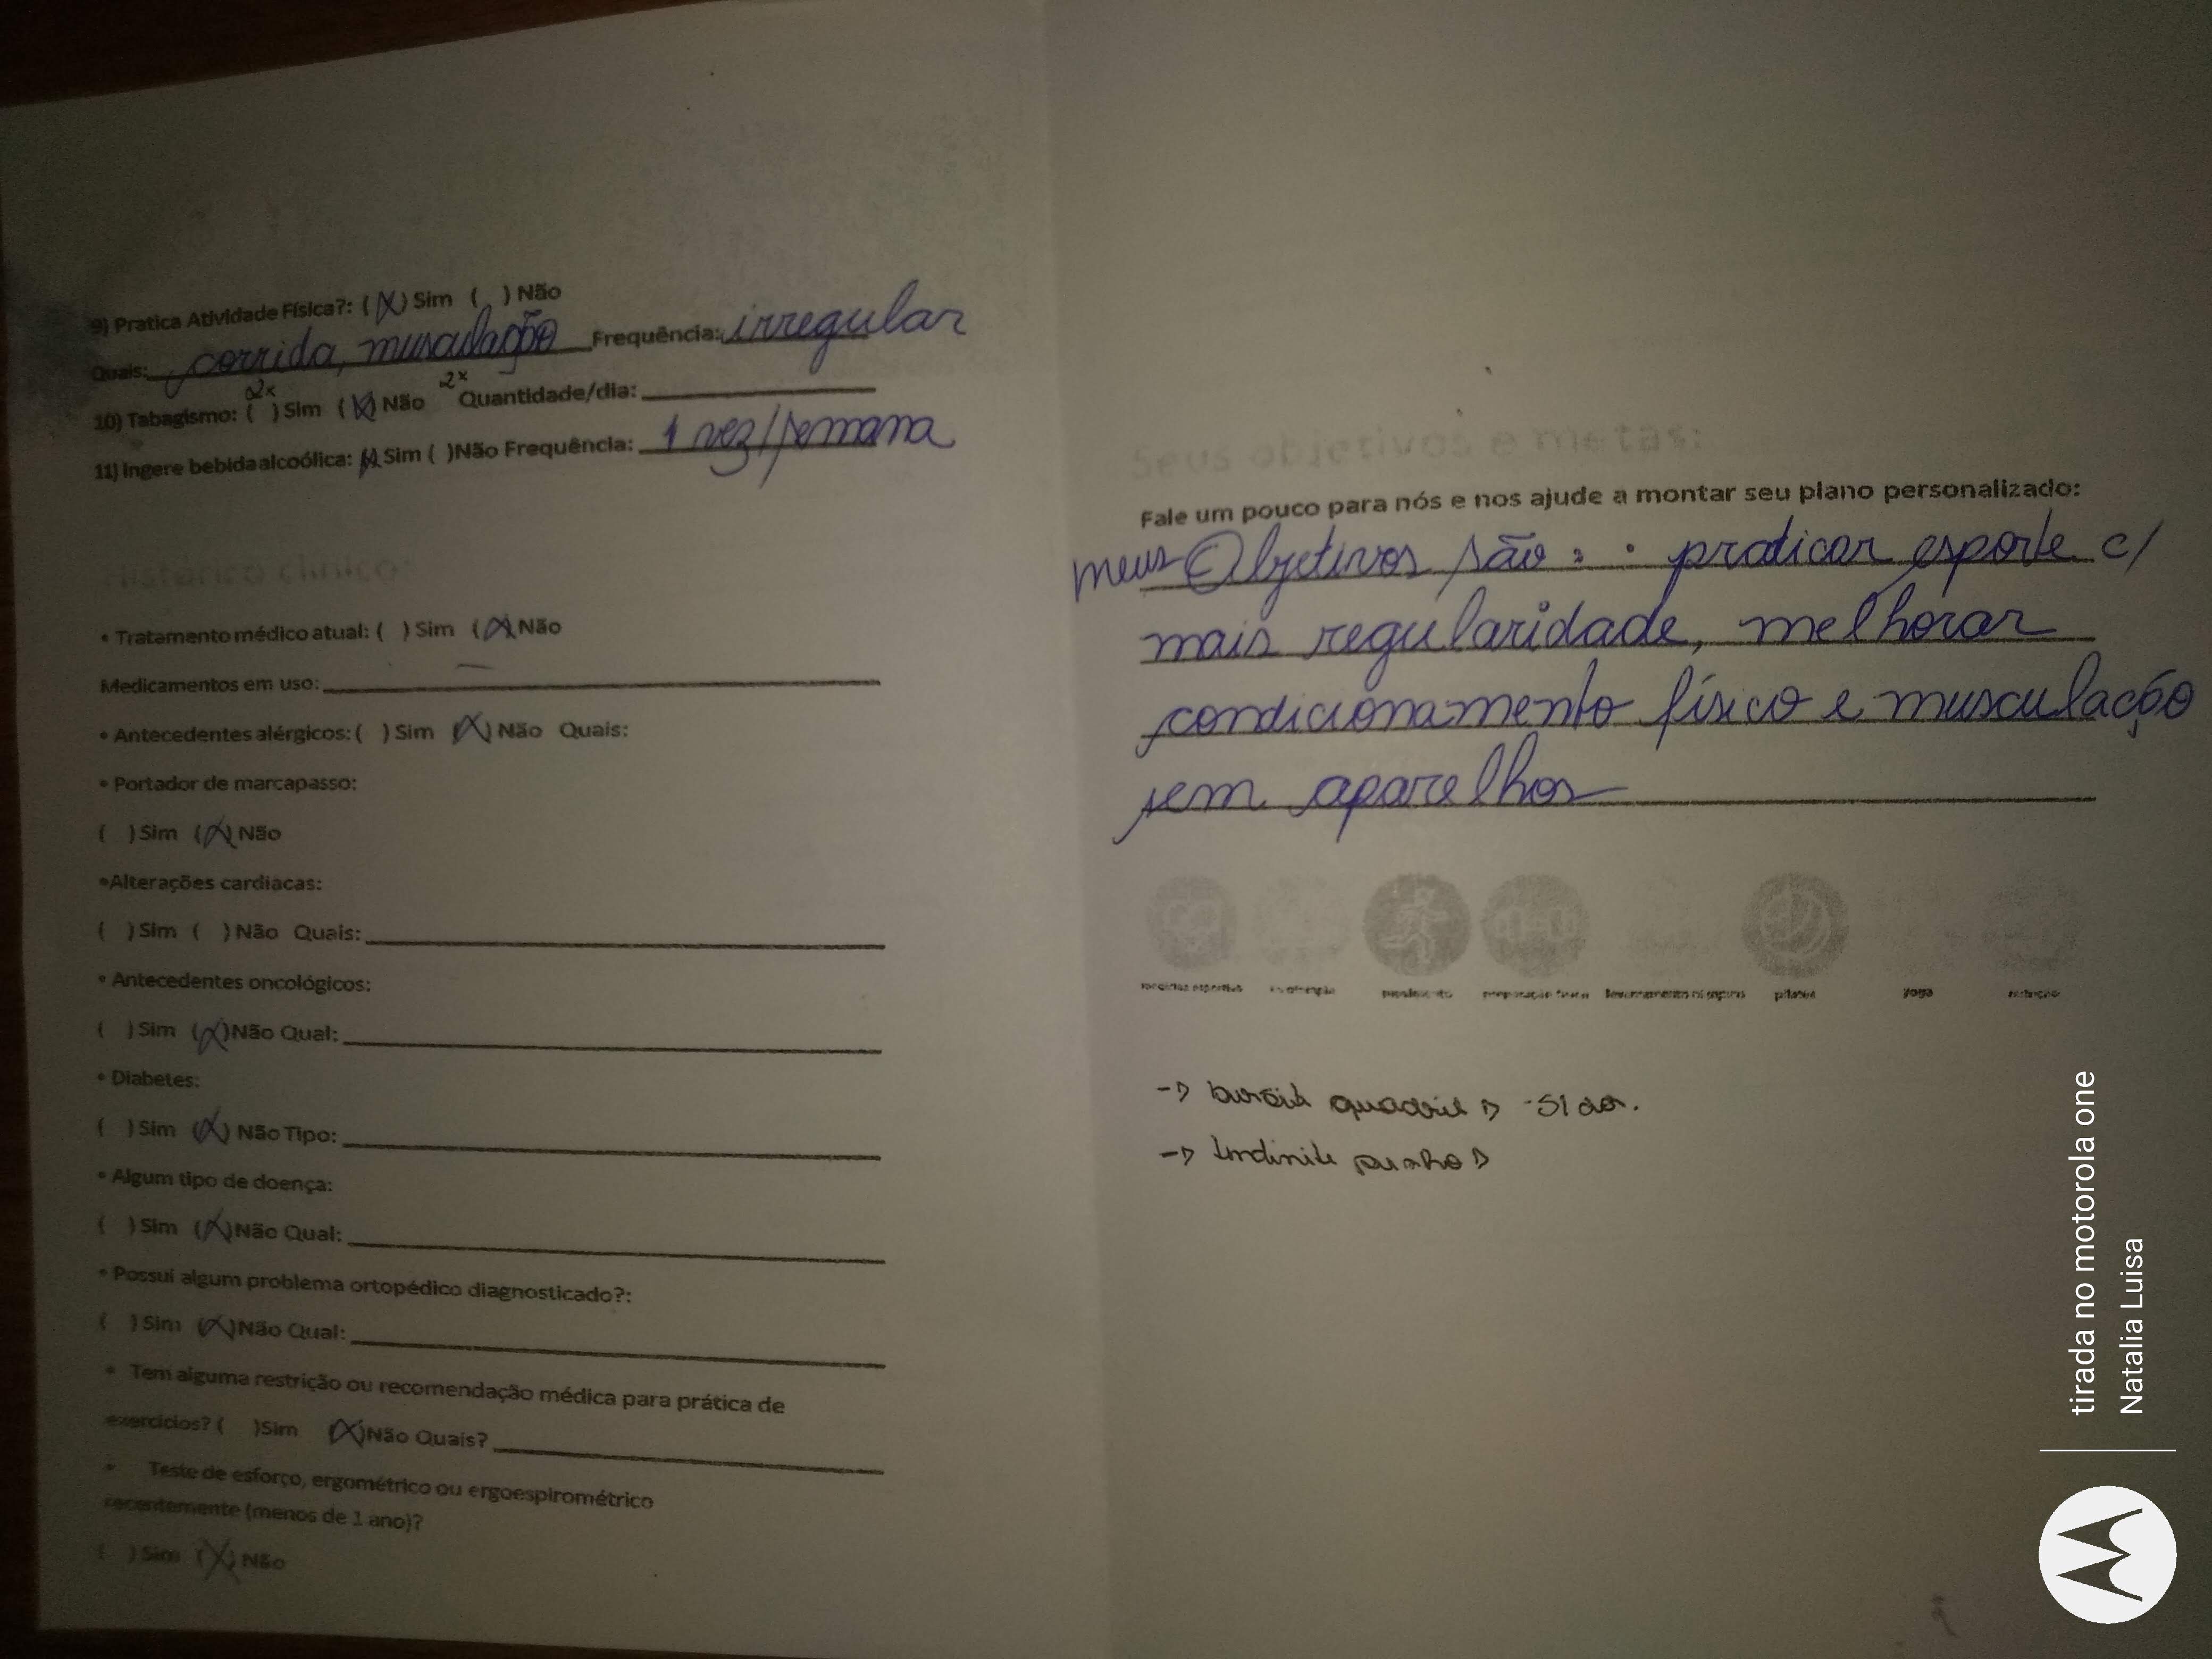 9) Pratica Atividade Física?: (X) Sim ( ) Não
Quais: corrida, musculação Frequência: irregular
2x 2x
10) Tabagismo: ( ) Sim (X) Não Quantidade/dia:
11) Ingere bebida alcoólica: (X) Sim ( ) Não Frequência: 1 vez/semana
• Tratamento médico atual: ( ) Sim (X) Não
Medicamentos em uso:
• Antecedentes alérgicos: ( ) Sim (X) Não Quais:
• Portador de marcapasso:
( ) Sim (X) Não
•Alterações cardiacas:
( ) Sim ( ) Não Quais:
• Antecedentes oncológicos:
( ) Sim (X) Não Qual:
• Diabetes:
( ) Sim (X) Não Tipo:
• Algum tipo de doença:
( ) Sim (X) Não Qual:
• Possui algum problema ortopédico diagnosticado?:
( ) Sim (X) Não Qual:
• Tem alguma restrição ou recomendação médica para prática de
exercícios? ( ) Sim (X) Não Quais?
• Teste de esforço, ergométrico ou ergoespirométrico
recentemente (menos de 1 ano)?
( ) Sim (X) Não
Seus objetivos e metas:
Fale um pouco para nós e nos ajude a montar seu plano personalizado:
meus Objetivos são: • praticar esporte c/
mais regularidade, melhorar
condicionamento físico e musculação
sem aparelhos
pilates yoga
quadril
punho
tirada no motorola one
Natalia Luisa